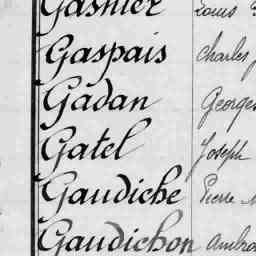 Gasnier Louis
Gaspais Charles
Gadan Georges
Gatel Joseph
Gaudiche Pierre
Gaudichon Ambro